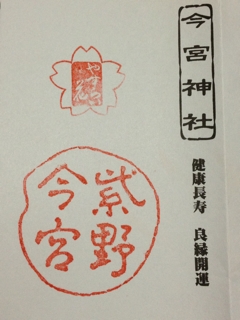 今宮神社
健康長寿 良縁開運
やすらい
紫野
今宮